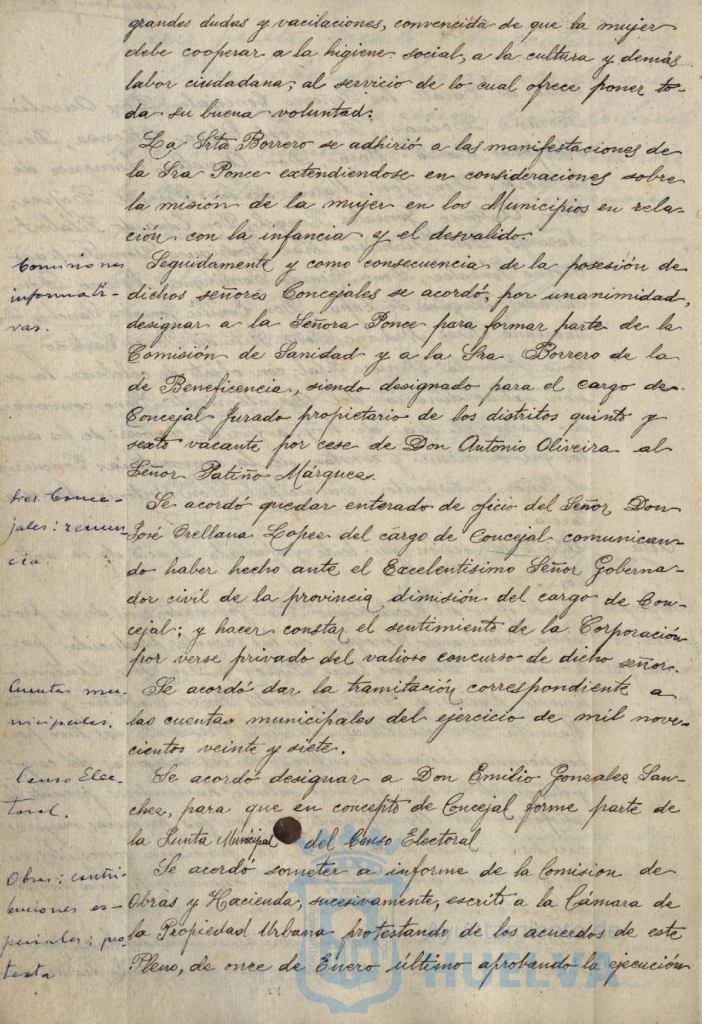 grandes dudas y vacilaciones, convencida de que la mujer
debe cooperar a la higiene social, a la cultura y demás
labor ciudadana, al servicio de lo cual ofrece poner to-
da su buena voluntad.
La Srta Borrero se adhirió a las manifestaciones de
la Sra Ponce extendiendose en consideraciones sobre
la misión de la mujer en los Municipios en rela-
ción con la infancia y el desvalido.
Comisiones
informati-
vas.
Seguidamente y como consecuencia de la posesión de
dichos señores Concejales se acordó, por unanimidad,
designar a la Señora Ponce para formar parte de la
Comisión de Sanidad y a la Sra. Borrero de la
de Beneficencia, siendo designado para el cargo de
Concejal Jurado propietario de los distritos quinto y
sexto vacante por cese de Don Antonio Oliveira al
Señor Patiño Márquez.
Sres. Conce-
jales: renun-
cia.
Se acordó quedar enterado de oficio del Señor Don
José Orellana Lopez del cargo de Concejal comunican-
do haber hecho ante el Excelentisimo Señor Goberna-
dor civil de la provincia dimisión del cargo de Con-
cejal; y hacer constar el sentimiento de la Corporación
por verse privado del valioso concurso de dicho señor.
Cuentas mu-
nicipales.
Se acordó dar la tramitación correspondiente a
las cuentas municipales del ejercicio de mil nove-
cientos veinte y siete.
Censo Elec-
toral.
Se acordó designar a Don Emilio Gonzalez San-
chez, para que en concepto de Concejal forme parte de
la Junta Municipal del Censo Electoral
Obras; contri-
buciones es-
peciales: pro-
testa
Se acordó someter a informe de la Comision de
Obras y Hacienda, sucesivamente, escrito a la Cámara de
la Propiedad Urbana protestando de los acuerdos de este
Pleno, de once de Enero último aprobando la ejecución
HUELVA